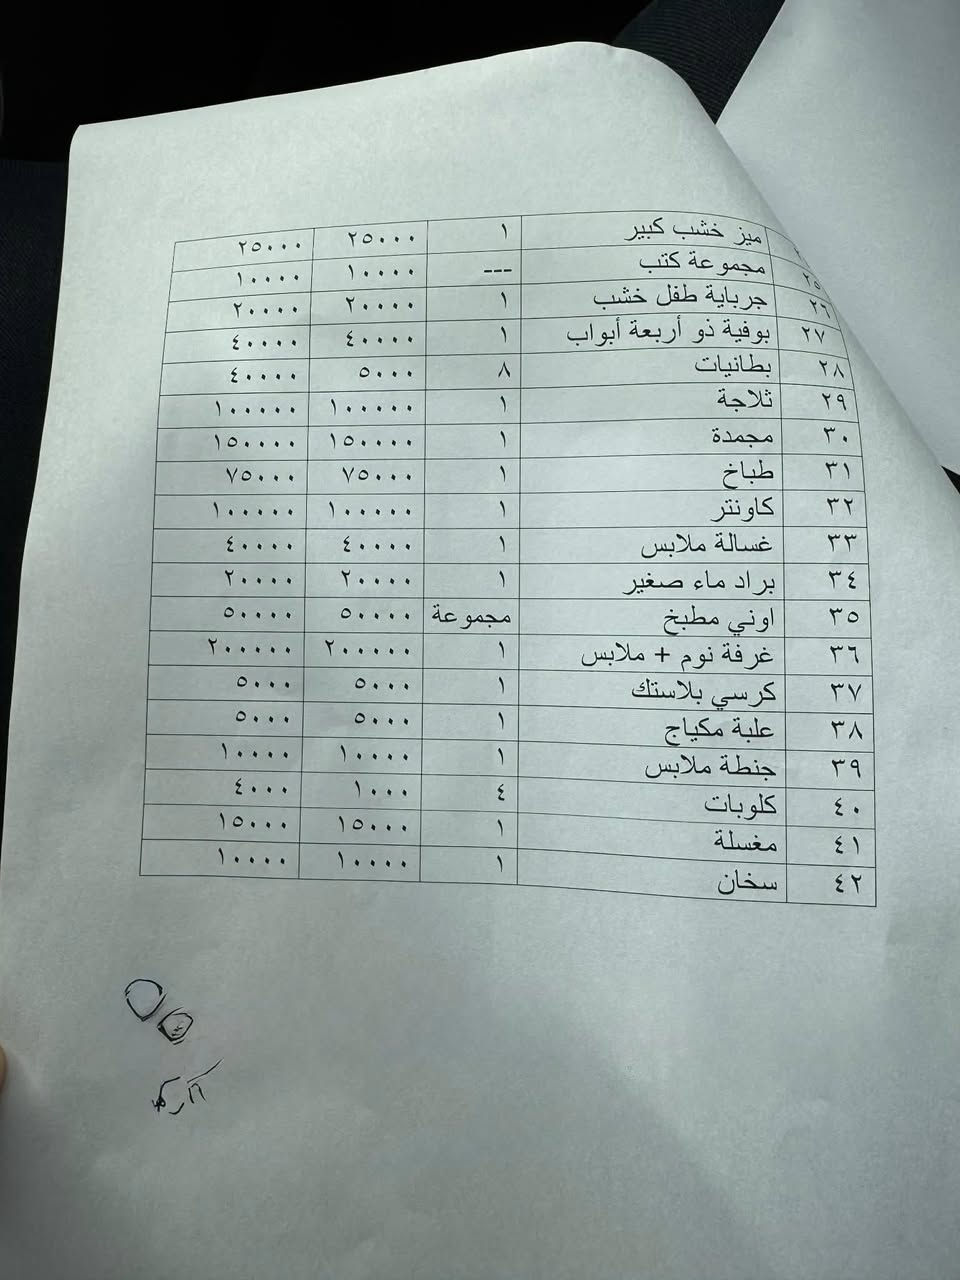 ميز خشب كبير ١ ٢٥٠٠٠ ٢٥٠٠٠
٢٥ مجموعة كتب --- ١٠٠٠٠ ١٠٠٠٠
٢٦ جرباية طفل خشب ١ ٢٠٠٠٠ ٢٠٠٠٠
٢٧ بوفية ذو أربعة أبواب ١ ٤٠٠٠٠ ٤٠٠٠٠
٢٨ بطانيات ٨ ٥٠٠٠ ٤٠٠٠٠
٢٩ ثلاجة ١ ١٠٠٠٠٠ ١٠٠٠٠٠
٣٠ مجمدة ١ ١٥٠٠٠٠ ١٥٠٠٠٠
٣١ طباخ ١ ٧٥٠٠٠ ٧٥٠٠٠
٣٢ كاونتر ١ ١٠٠٠٠٠ ١٠٠٠٠٠
٣٣ غسالة ملابس ١ ٤٠٠٠٠ ٤٠٠٠٠
٣٤ براد ماء صغير ١ ٢٠٠٠٠ ٢٠٠٠٠
٣٥ اوني مطبخ مجموعة ٥٠٠٠٠ ٥٠٠٠٠
٣٦ غرفة نوم + ملابس ١ ٢٠٠٠٠٠ ٢٠٠٠٠٠
٣٧ كرسي بلاستك ١ ٥٠٠٠ ٥٠٠٠
٣٨ علبة مكياج ١ ٥٠٠٠ ٥٠٠٠
٣٩ جنطة ملابس ١ ١٠٠٠٠ ١٠٠٠٠
٤٠ كلوبات ٤ ١٠٠٠ ٤٠٠٠
٤١ مغسلة ١ ١٥٠٠٠ ١٥٠٠٠
٤٢ سخان ١ ١٠٠٠٠ ١٠٠٠٠